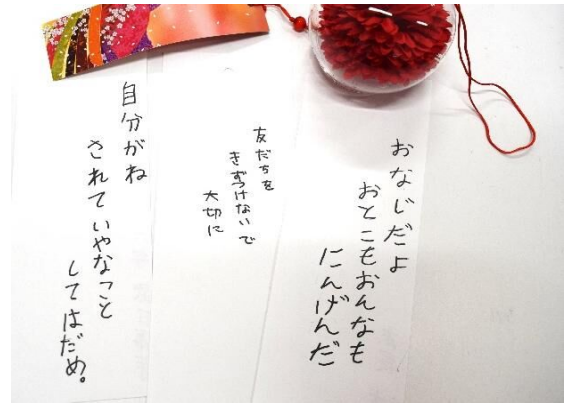 おなじだよ
おとこもおんなも
にんげんだ
友だちを
きずつけないで
大切に
自分がね
されていやなこと
してはだめ。